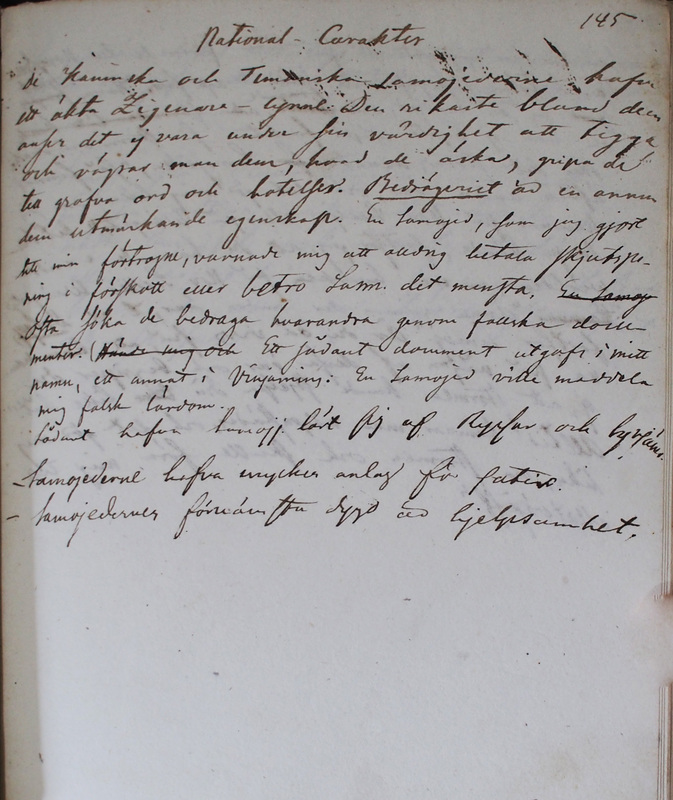 145
National-Carakter
de Kaninska och Timanska Samojederne hafva
ett äkta Zigenare-lynne. Den rikaste bland dem
anser det ej vara under sin värdighet att tigga
och vägrar man dem, hvad de äska, gripa de
till grofva ord och hotelser. Bedrägeriet är en annan
dem utmärkande egenskap. En Samojed, som jag gjort
till min förtrogne, varnade mig att aldrig betala skjutspe-
ning i förskott eller betro Sam. det minsta. En Samoj
Ofta söka de bedraga hvarandra genom falska docu-
menter. (Hände mig och Ett sådant document utgafs i mitt
namn, ett annat i Vinjamins: En Samojed ville meddela
mig falsk lärdom.
Sådant hafva Samojj. lärt sig af Ryssar och
- Samojederne hafva mycken anlag för satir.
- Samojedernes förnämsta dygd är hjelpsamhet.